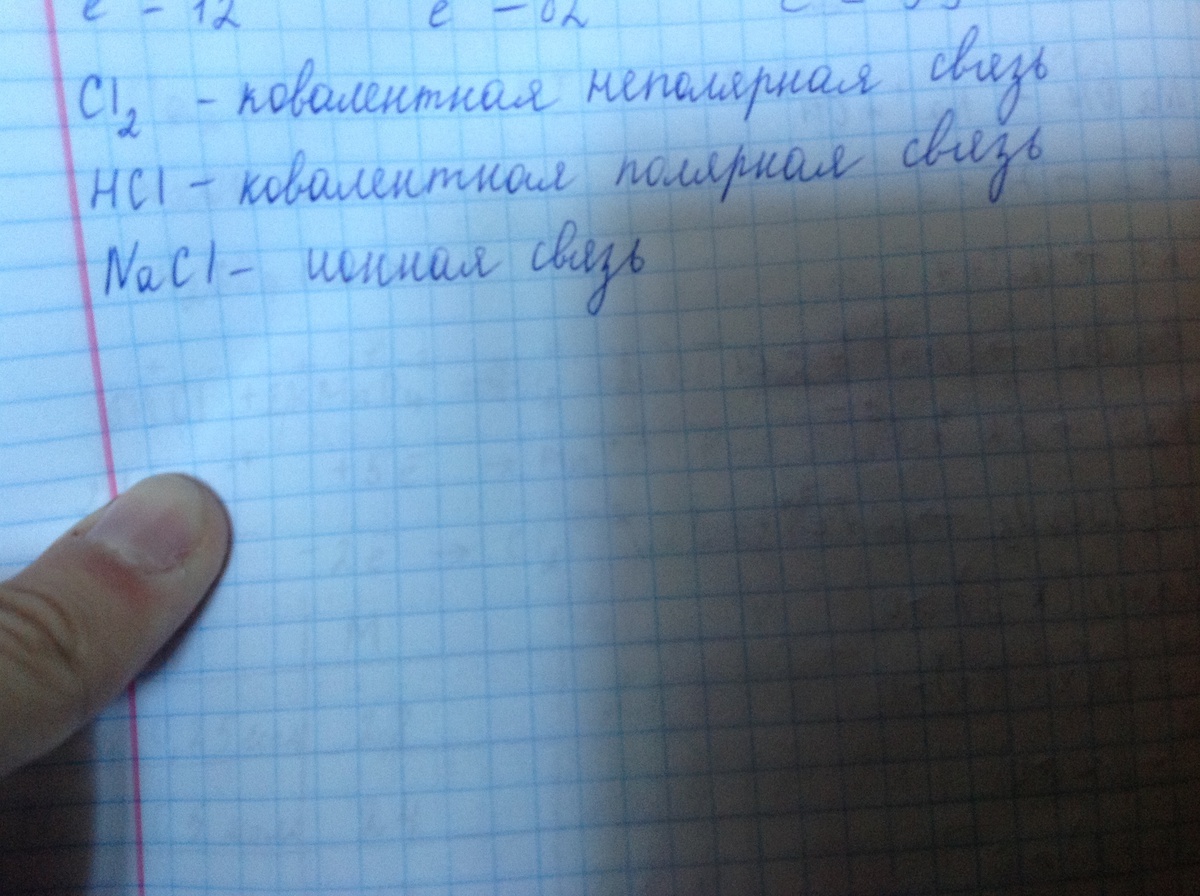 e⁻ - 12 e⁻ - 82
Cl₂ - ковалентная неполярная связь
HCl - ковалентная полярная связь
NaCl - ионная связь